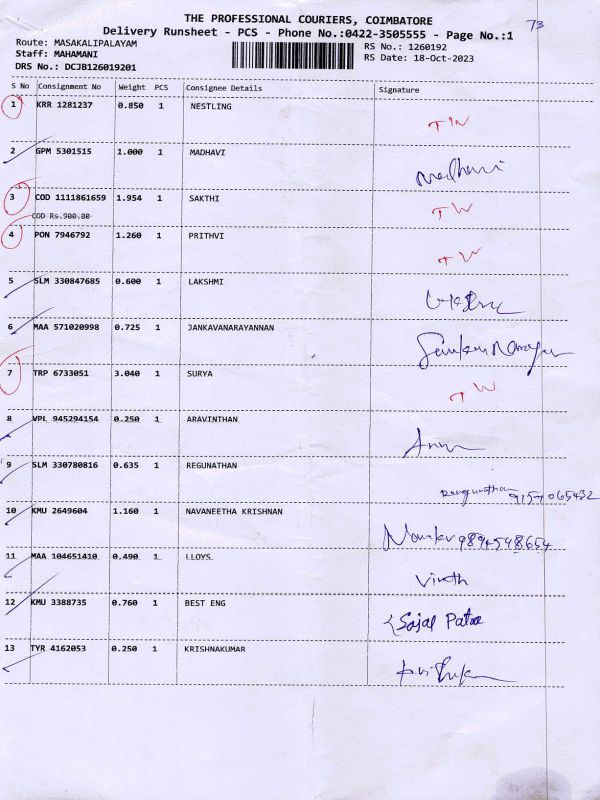 THE PROFESSIONAL COURIERS, COIMBATORE
73
Delivery Runsheet - PCS - Phone No.:0422-3505555 - Page No.:1
Route: MASAKALIPALAYAM
RS No.: 1260192
Staff: MAHAMANI
RS Date: 18-Oct-2023
DRS No.: DCJB126019201
S No Consignment No Weight PCS Consignee Details Signature
1 KRR 1281237 0.850 1 NESTLING
TW
2 GPM 5301515 1.000 1 MADHAVI
Madhavi
3 COD 1111861659 1.954 1 SAKTHI
TW
COD Rs.900.00
4 PON 7946792 1.260 1 PRITHVI
TW
5 SLM 330847685 0.600 1 LAKSHMI
6 MAA 571020998 0.725 1 JANKAVANARAYANNAN
7 TRP 6733051 3.040 1 SURYA
TW
8 VPL 945294154 0.250 1 ARAVINTHAN
9 SLM 330780816 0.635 1 REGUNATHAN
10 KMU 2649604 1.160 1 NAVANEETHA KRISHNAN
9894548654
11 MAA 104651410 0.490 1 LLOYS
Vinoth
12 KMU 3388735 0.760 1 BEST ENG
Sajal Patra
13 TYR 4162053 0.250 1 KRISHNAKUMAR